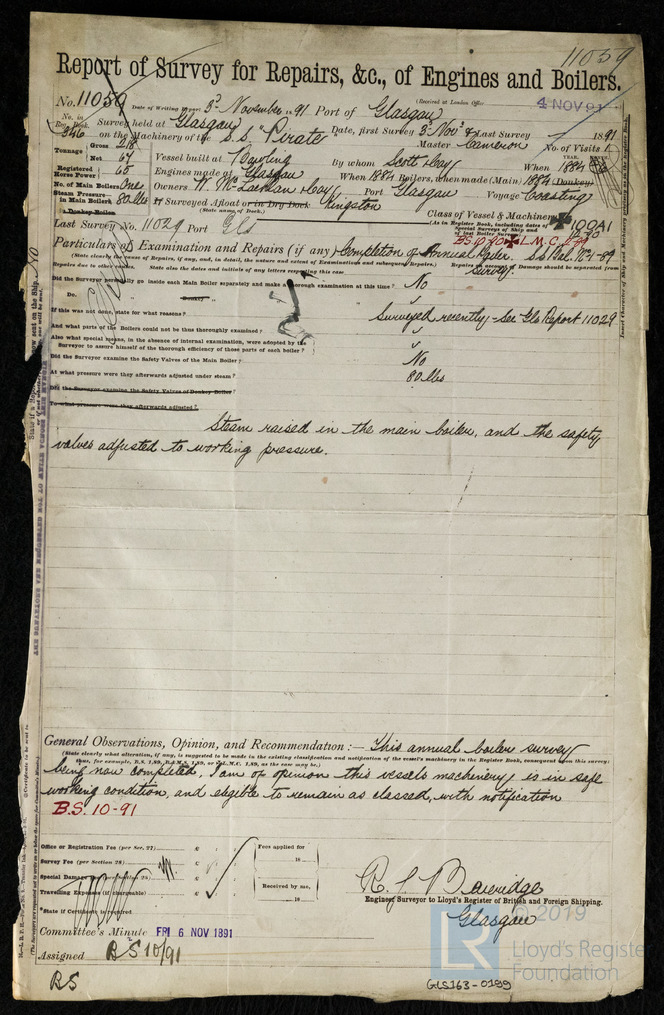 11059
Report of Survey for Repairs, &c., of Engines and Boilers.
No. 11059 Date of writing report 3rd November 1891 Port of Glasgow (Received at London Office 4 NOV 91
No. in Reg. Book 346 Survey held at Glasgow Date, first Survey 3 Novr & Last Survey 1891
on the Machinery of the S.S. "Pirate" Master Cameron No. of Visits 1
Tonnage Gross 218 Net 67
Vessel built at Bowling By whom Scott & Coy When 1884
Registered Horse Power 60 Engines made at Glasgow When 1884 Boilers, when made (Main) 1884 (Donkey)
No. of Main Boilers One Owners Port Glasgow Voyage Coasting
Steam Pressure in Main Boilers 80 lbs If Surveyed Afloat or in Dry Dock Kingston
in Donkey Boilers (State name of Dock.)
Class of Vessel & Machinery 100A1
(As in Register Book, including dates of Special Surveys of Ship and of last Boiler Survey
Last Survey No. 11029 Port Gls
Particulars of Examination and Repairs (if any) Completion of Annual Boiler
survey.
Did the Surveyor personally go inside each Main Boiler separately and make a thorough examination at this time? No
Do. Donkey
If this was not done, state for what reasons? Surveyed recently - See Gls Report 11029
And what parts of the Boilers could not be thus thoroughly examined?
Also what special means, in the absence of internal examination, were adopted by the
Surveyor to assure himself of the thorough efficiency of those parts of each boiler?
Did the Surveyor examine the Safety Valves of the Main Boiler? No
At what pressure were they afterwards adjusted under steam? 80 lbs
Did the Surveyor examine the Safety Valves of Donkey Boiler?
To what pressure were they afterwards adjusted?
Steam raised in the main boiler, and the safety
valves adjusted to working pressure.
General Observations, Opinion, and Recommendation:— This annual boiler survey
(State clearly what alteration, if any, is suggested to be made in the existing classification and notification of the vessel's machinery in the Register Book, consequent upon this survey;
being now completed, I am of opinion this vessels machinery is in safe
working condition, and elegible to remain as classed, with notification
B.S. 10-91
Office or Registration Fee (per Sec. 27)
Survey Fee (per Section 28)
Special Damage
Travelling Expenses (if chargeable)
State if Certificate is required
Fees applied for
18
Received by me,
18
Engineer Surveyor to Lloyd's Register of British and Foreign Shipping.
Glasgow
Committee's Minute FRI 6 NOV 1891
Assigned BS 10/91
BS
GLS163-0199
LR
© 2019
Lloyd's Register
Foundation